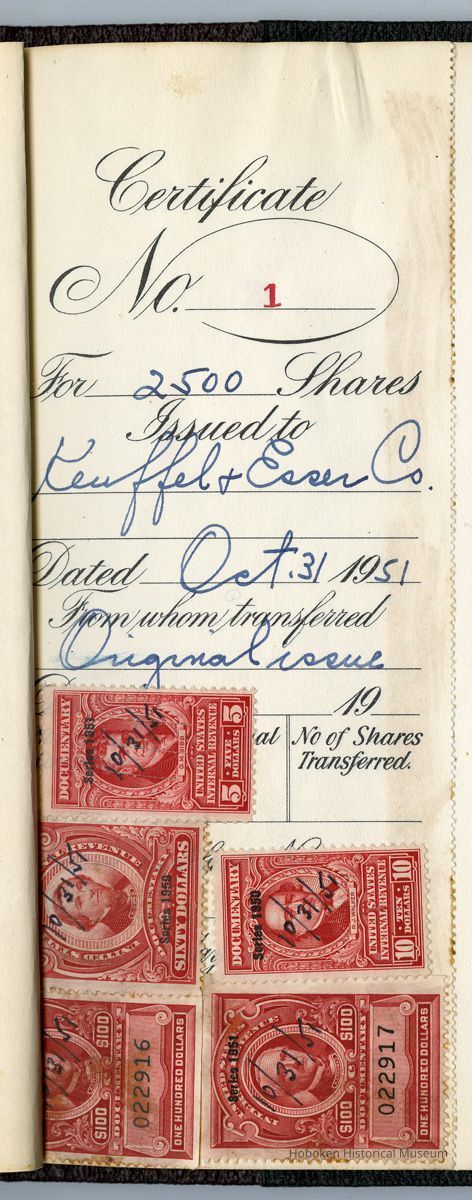 Certificate
No. 1
For 2500 Shares
Issued to
Keuffel & Esser Co.
Dated Oct. 31 1951
From whom transferred
Original issue
19
al No of Shares
Transferred.
DOCUMENTARY
Series 1951
10/31/51
UNITED STATES
INTERNAL REVENUE
5 FIVE DOLLARS 5
REVENUE
10/31/51
UNITED
DOCUMENTARY
Series 1950
SIXTY DOLLARS
DOCUMENTARY
Series 1950
10/31/51
R.J. WALKER
UNITED STATES
INTERNAL REVENUE
10 TEN DOLLARS 10
10/31/51
$100 DOCUMENTARY $100
022916
ONE HUNDRED DOLLARS
Series 1951
10/31/51
$100 DOCUMENTARY $100
022917
ONE HUNDRED DOLLARS
Hoboken Historical Museum